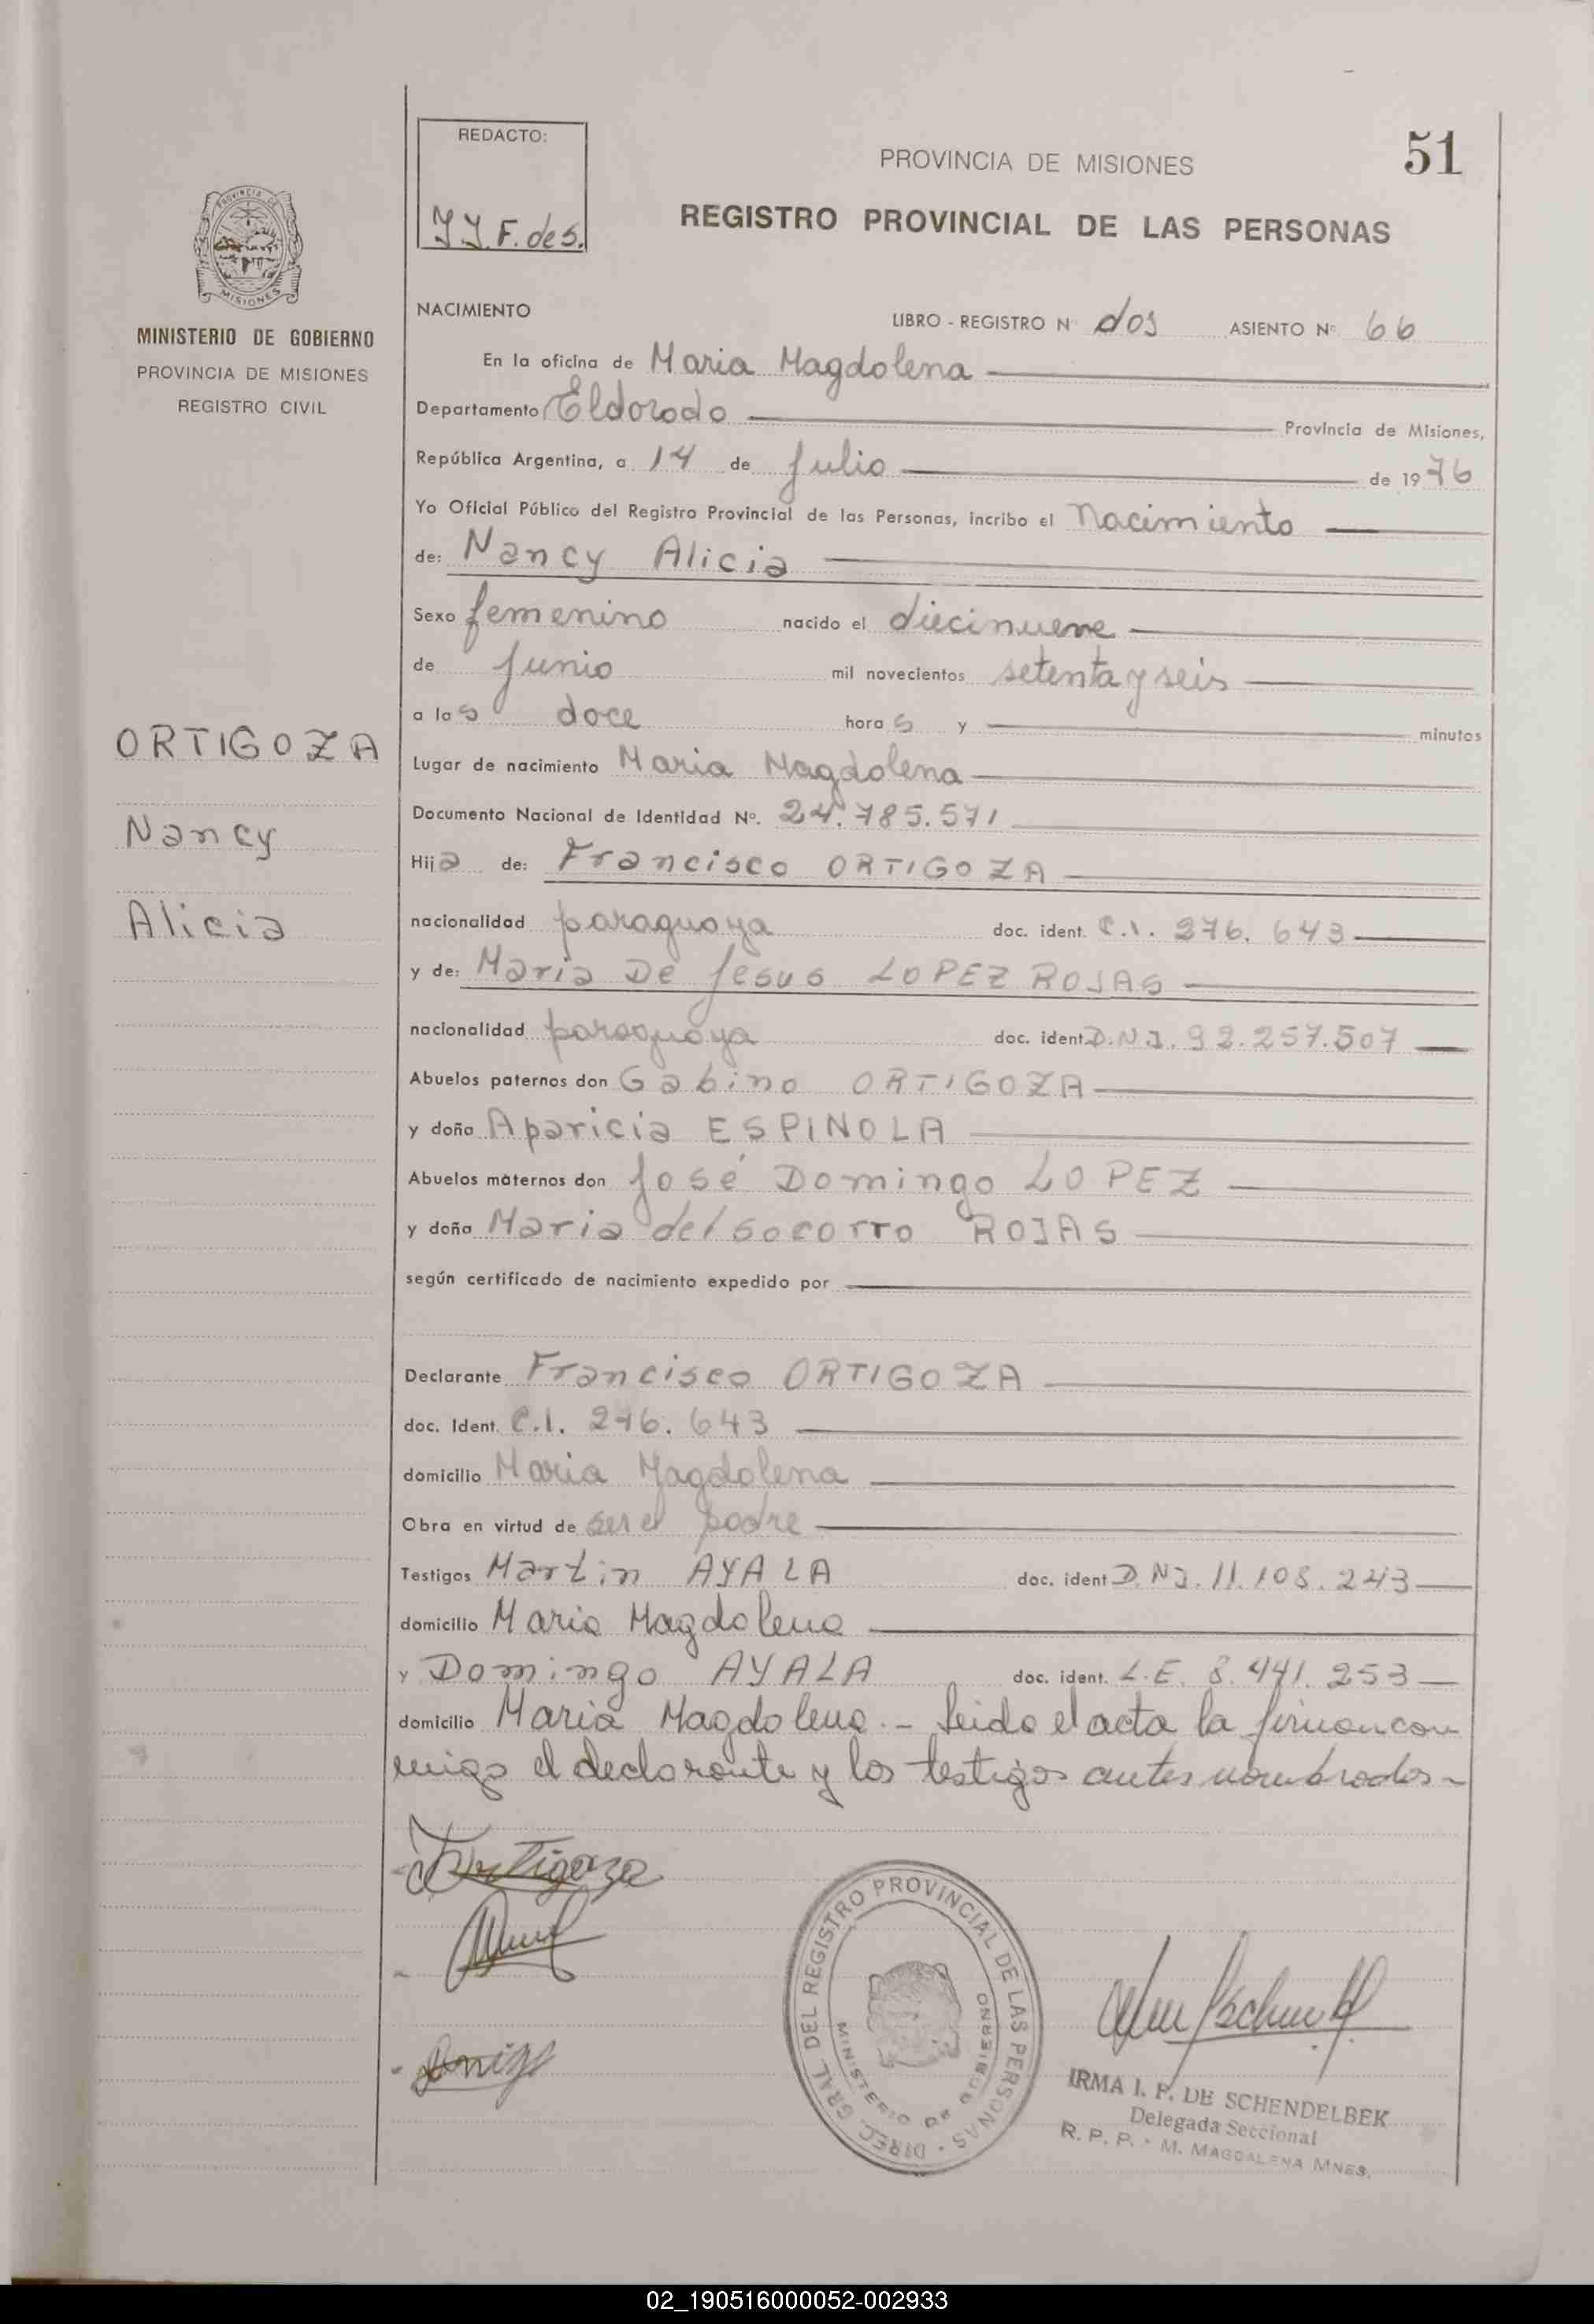 REDACTO:
PROVINCIA DE MISIONES
51
F. de S.
REGISTRO PROVINCIAL DE LAS PERSONAS
PROVINCIA DE
MISIONES
MINISTERIO DE GOBIERNO
PROVINCIA DE MISIONES
REGISTRO CIVIL
NACIMIENTO
LIBRO - REGISTRO Nº dos ASIENTO Nº 66
En la oficina de Maria Magdalena
Departamento Eldorado Provincia de Misiones,
República Argentina, a 14 de Julio de 1976
Yo Oficial Público del Registro Provincial de las Personas, incribo el Nacimiento
de: Nancy Alicia
Sexo femenino nacido el diecinueve
de Junio mil novecientos setenta y seis
a las doce horas y minutos
ORTIGOZA
Nancy
Alicia
Lugar de nacimiento Maria Magdalena
Documento Nacional de Identidad Nº. 24.785.571
Hija de: Francisco ORTIGOZA
nacionalidad paraguaya doc. ident. C.I. 276.643
y de: Maria De Jesus LOPEZ ROJAS
nacionalidad paraguaya doc. ident. D.N.I. 92.257.507
Abuelos paternos don Gabino ORTIGOZA
y doña Aparicia ESPINOLA
Abuelos maternos don José Domingo LOPEZ
y doña Maria del Socorro ROJAS
según certificado de nacimiento expedido por
Declarante Francisco ORTIGOZA
doc. Ident. C.I. 276.643
domicilio Maria Magdalena
Obra en virtud de ser el padre
Testigos Martin AYALA doc. ident D.N.I. 11.108.243
domicilio Maria Magdalena
y Domingo AYALA doc. ident. L.E. 8.441.253
domicilio Maria Magdalena.- Leido el acta la firman con
migo el declarante y los testigos antes nombrados-
Ortigoza
DIREC. GRAL. DEL REGISTRO PROVINCIAL DE LAS PERSONAS
MINISTERIO DE GOBIERNO
IRMA I. F. DE SCHENDELBEK
Delegada Seccional
R. P. P. - M. MAGDALENA MNES.
02_190516000052-002933